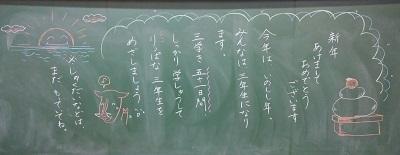 新年
あけまして
おめでとう
ございます
今年は いのしし年。
みんなは 三年生になり
ます。
三学き 五十一日間
しっかり 学しゅうして
りっぱな 三年生を
めざしましょう
※しゅくだいなどは、
まだ もっていてね。